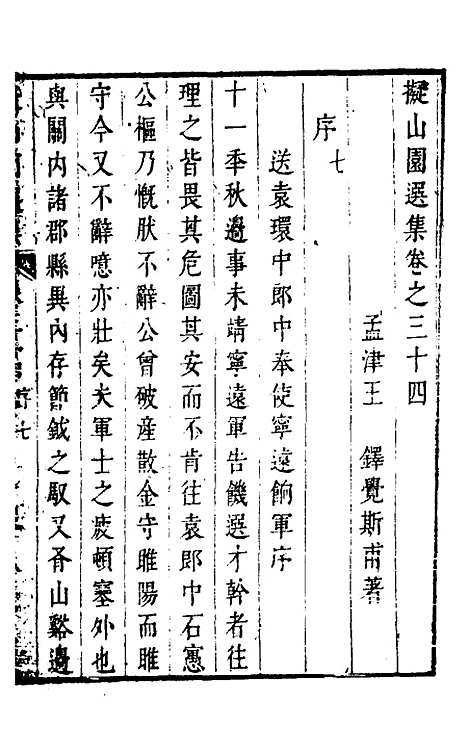 擬山園選集卷之三十四
孟津王　鐸覺斯甫著
序七
送袁環中郎中奉使寧遠餉軍序
十一季秋邊事未靖寧遠軍告饑選才幹者往
理之皆畏其危圖其安而不肯往袁郎中石寓
公樞乃慨肰不辭公曾破産散金守睢陽而睢
守今又不辭噫亦壯矣夫軍士之疲頓塞外也
與關內諸郡縣異內存節鉞之馭又吝山谿邊